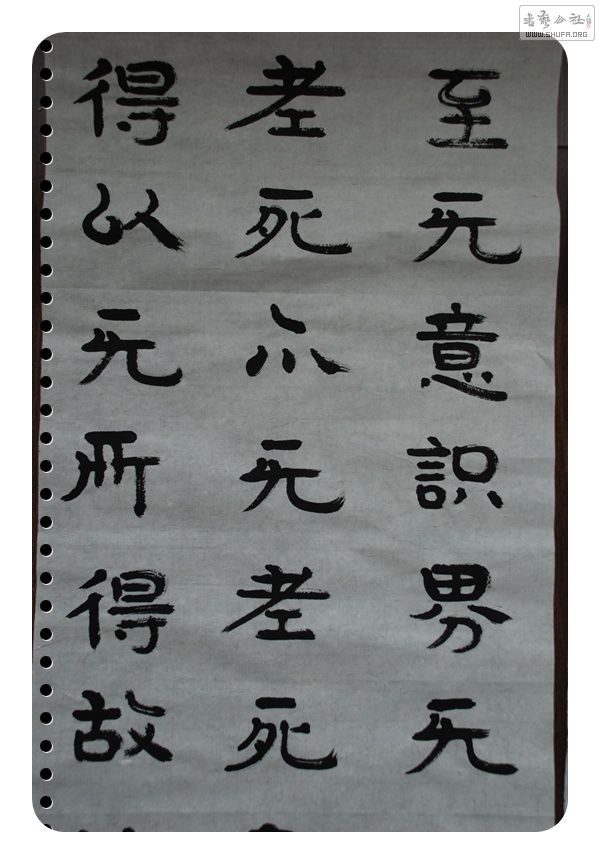 至无意識界无
老死亦无老死
得以无所得故
書藝公社
WWW.SHUFA.ORG